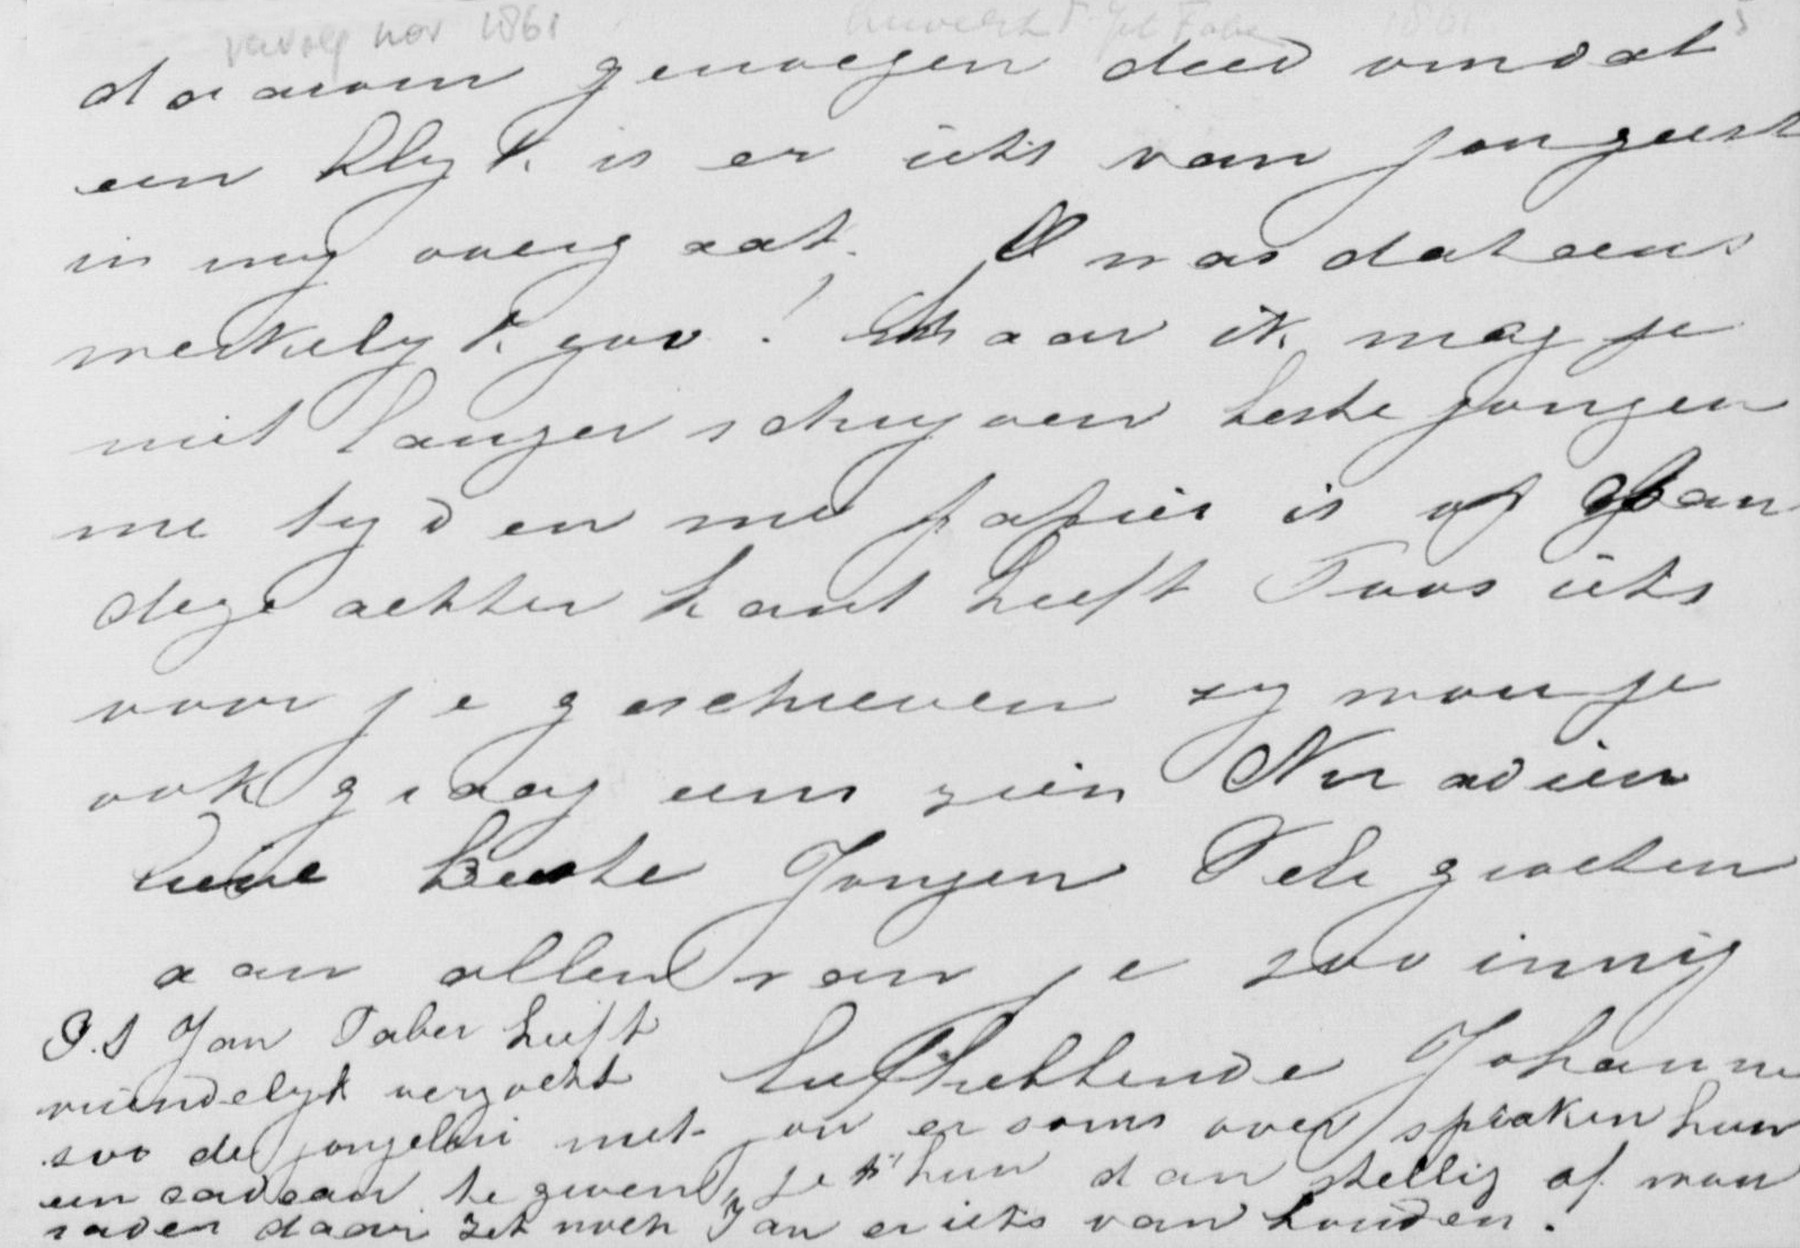 vervolg nov 1861
1861 5
daarom genoegen deed omdat
een blyk is er iets van jou geest
in my overgaat. O was dat eens
werkelyk zoo! Maar ik mag je
niet langer schryven beste jongen
me tyd en me papier is op Aan
deze achter kant heeft Toos iets
voor je geschreven zy wou je
ook graag eens zien Nu adieu
Lieve Beste Jongen Vele groeten
aan allen van je zoo innig
liefhebbende Johanna
P.S Jan Faber heeft
vriendelyk verzocht
zoo de jongelui met jou er soms over spraken hun
een cadeau te geven, je hun dan stellig af wou
raden daar zet noch Jan er iets van houden.